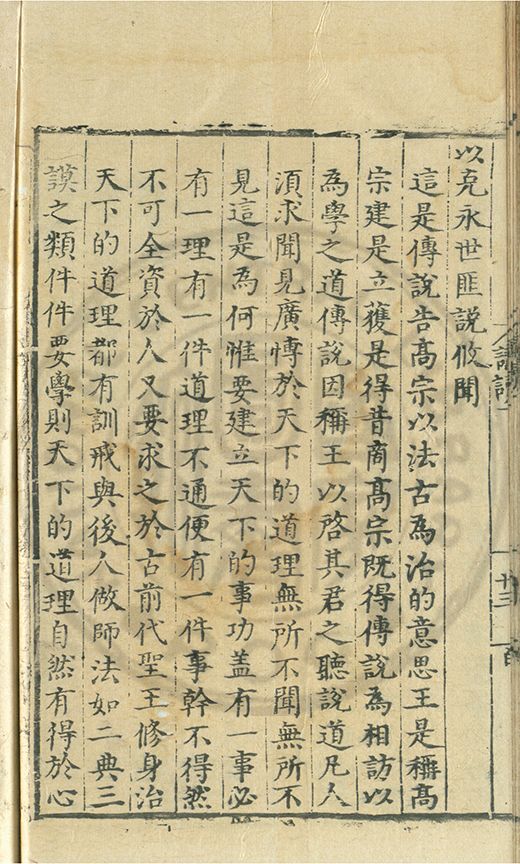 以克永世匪說攸聞
這是傳說告髙宗以法古為治的意思王是稱髙
宗建是立獲是得昔商髙宗既得傳說為相訪以
為學之道傳說因稱王以啓其君之聽說道凡人
須求聞見廣愽於天下的道理無所不聞無所不
見這是為何惟要建立天下的事功盖有一事必
有一理有一件道理不通便有一件事幹不得然
不可全資於人又要求之於古前代聖王修身治
天下的道理都有訓戒與後人做師法如二典三
謨之類件件要學則天下的道理自然有得於心
十三